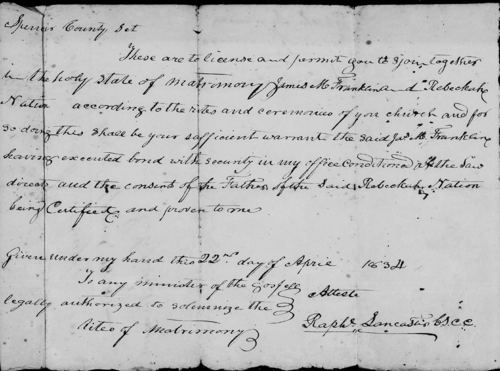 Spencer County Sct
These are to license and permit you to Join together
in the holy state of matrimony James M Franklin and Rebeckah
Nation according to the rites and ceremonies of you church and for
so doing this shall be your sufficient warrant the said Jas M Franklin
having executed bond with security in my office conditioned as the law
directs and the consent of the Father of the said Rebeckah Nation
being Certified and proven to me
Given under my hand this 22nd day of April 1834
To any minister of the Gospel
legally authorized to solemnize the
Rites of Matrimony
Atteste
Raphl Lancaster C S C C